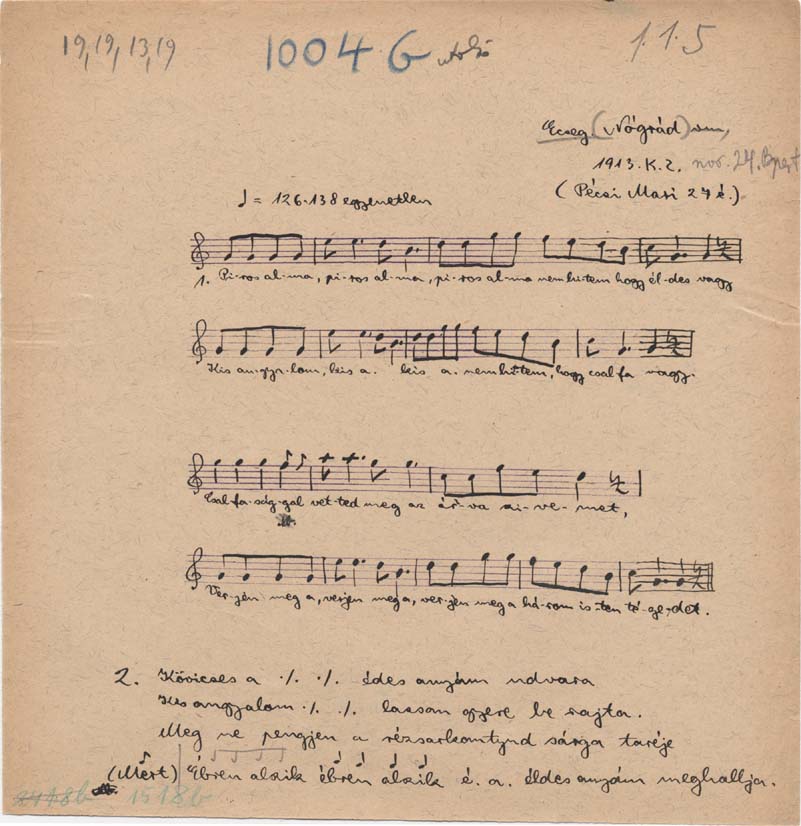 19, 19, 13, 19 1004 b utolsó 1.1.5
Ecseg (Nógrád) vm,
1913. K. Z. nov. 24. Bpest
(Pécsi Mari 27 é.)
♩ = 126-138 egyenetlen
1. Pi-ros al-ma, pi-ros al-ma, pi-ros al-ma nem hi-tem hogy él-des vagy
Kis an-gya-lom, kis a. kis a. nem hi-tem, hogy csal-fa vagy.
Csal-fa-ság-gal vet-ted meg az ár-va szi-ve-met,
Ver-jen meg a, verjen meg a, ver-jen meg a há-rom is-ten té-ge-det.
2. Kövicses a ·/. ·/. édes anyám udvara
Kis angyalom ·/. ·/. lassan gyere be rajta.
Meg ne pengjen a rézsarkantyud sárga taréje
(Mert) Ébren alszik ébren alszik é. a. éldes anyám meghallja.
2418b 1518b